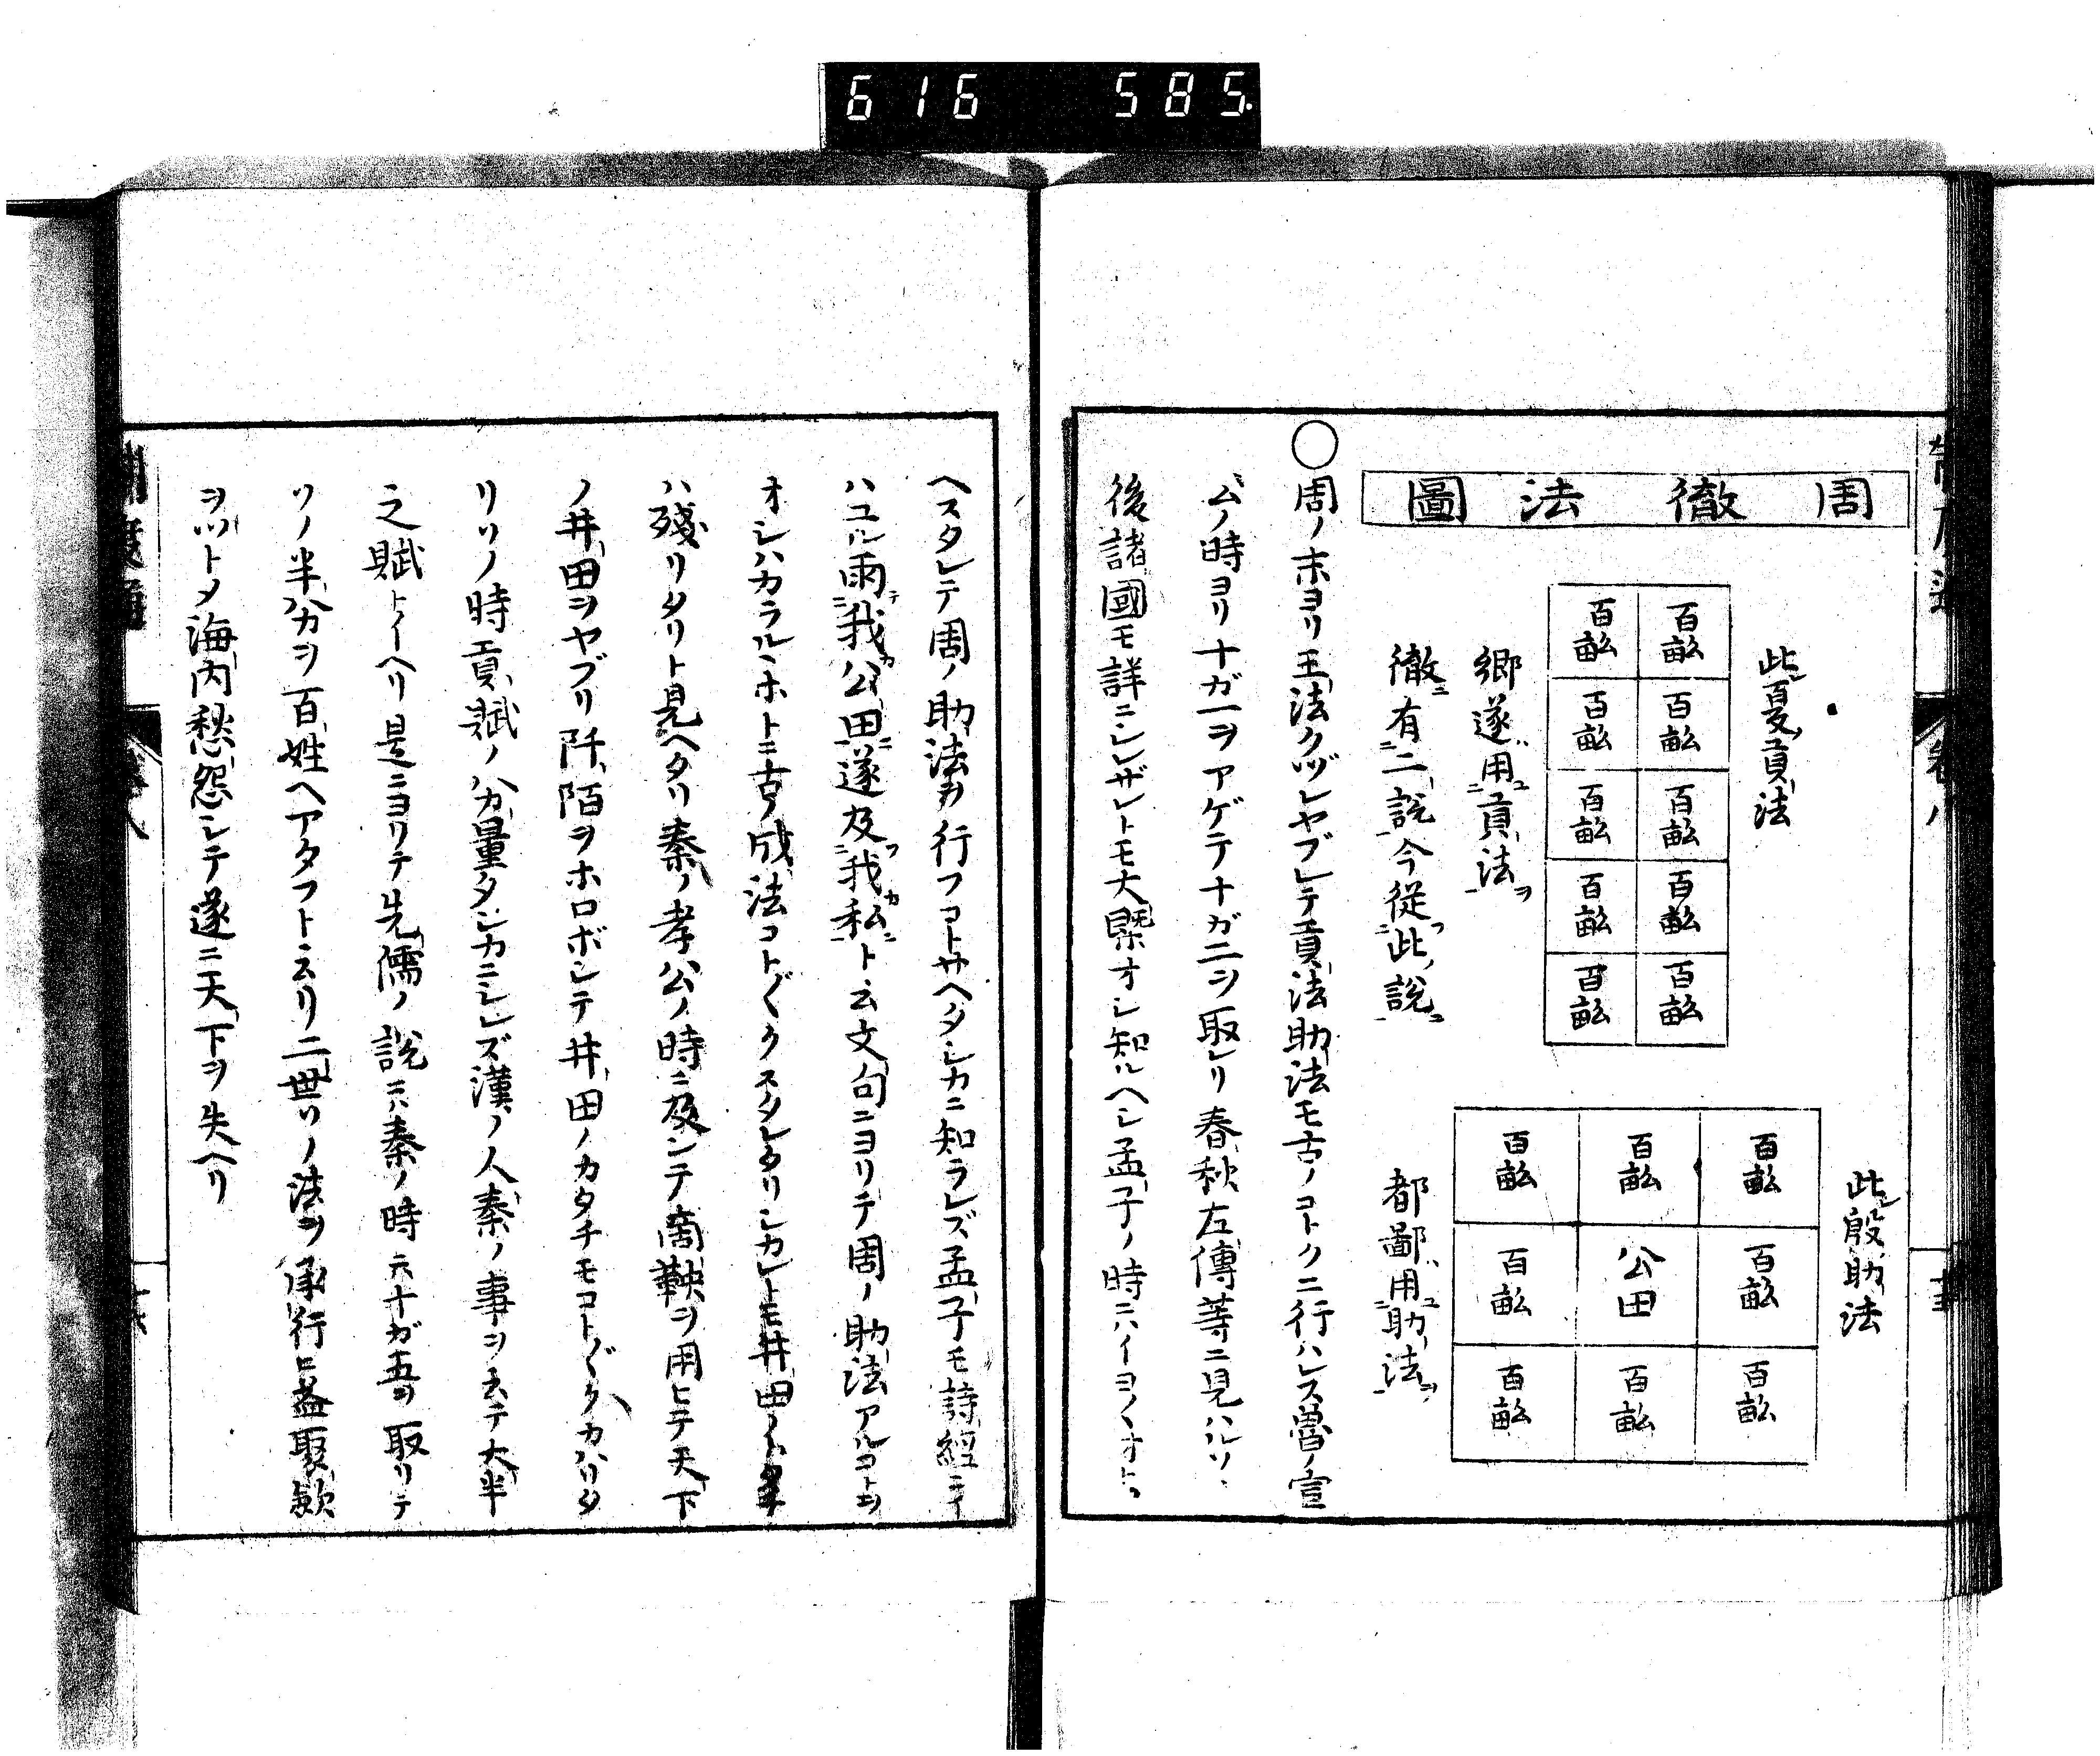 616 585.
周徹法圖
此夏貢法
百畝 百畝
百畝 百畝
百畝 百畝
百畝 百畝
百畝 百畝
郷遂用貢法
徹有二説今從此説
此殷助法
百畝 百畝 百畝
百畝 公田 百畝
百畝 百畝 百畝
都鄙用助法
○周ノ末ヨリ王法クヅレヤブレテ貢法助法モ古ノコトクニ行ハレス魯ノ宣
公ノ時ヨリ十ガ一ヲアゲテ十ガ二ヲ取レリ春秋左傳等ニ見ハルソノ
後諸國モ詳ニシレザレトモ大槩オシ知ルヘシ孟子ノ時ニハイヨ〱オトロ
ヘスタレテ周ノ助法ヲ行フコトサヘタシカニ知ラレズ孟子モ詩經ニイ
ハユル雨我公田遂及我私ト云文句ニヨリテ周ノ助法アルコトヲ
オシハカラルヽホトニ古ノ成法コト〲クスタレタリシカレトモ井田ノ
ハ殘リタリト見ヘタリ秦ノ孝公ノ時ニ及ンテ商鞅ヲ用ヒテ天下
ノ井田ヲヤブリ阡陌ヲホロボシテ井田ノカタチモコト〲クカハリタ
リソノ時貢賦ノ分量タシカニシレズ漢ノ人秦ノ事ヲ云テ大半
之賦トイヘリ是ニヨリテ先儒ノ説ニハ秦ノ時ハ十ガ五ヲ取リテ
ソノ半分ヲ百姓ヘアタフト云リ二世ソノ法ヲ承行ヒ益聚歛
ヲツトメ海内愁怨シテ遂ニ天下ヲ失ヘリ